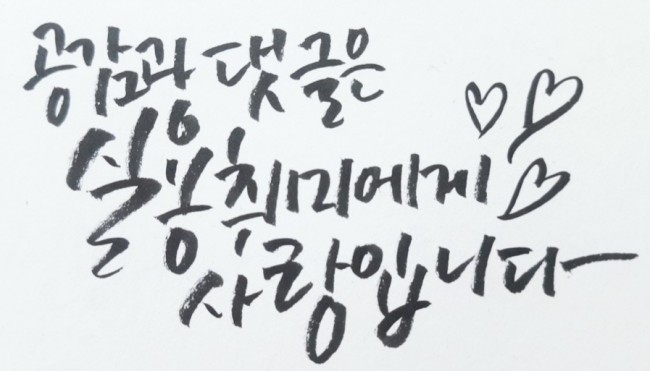 공감과 댓글은
실용취미에게
사랑입니다